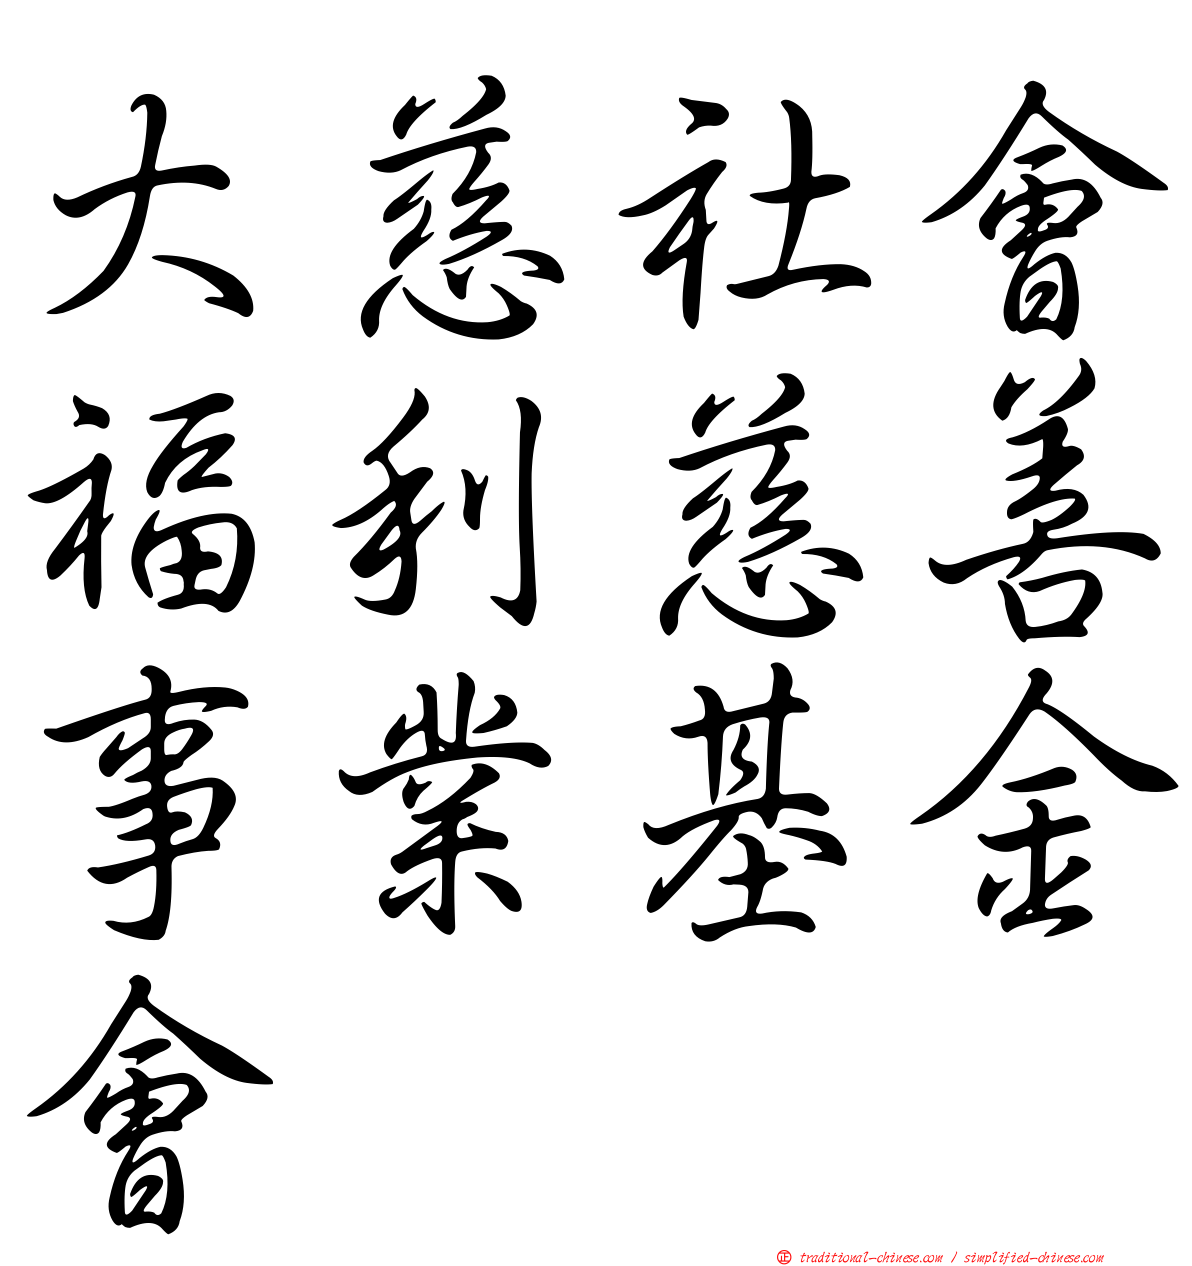 大慈社會
福利慈善
事業基金
會
正 traditional-chinese.com / simplified-chinese.com